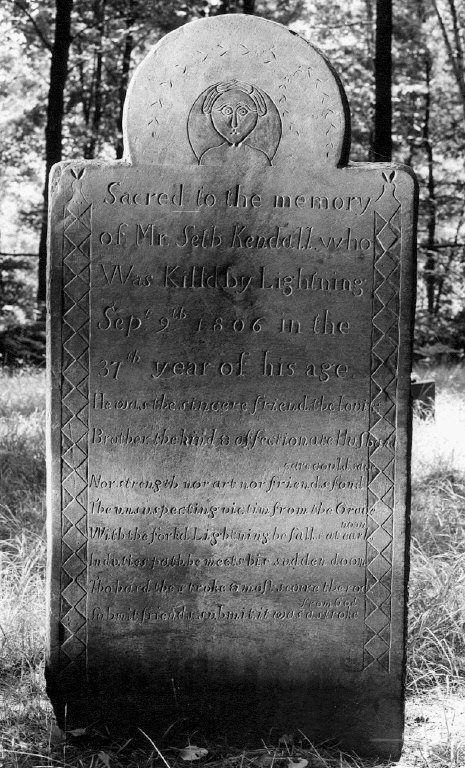 Sacred to the memory
of Mr. Seth Kendall, who
Was Killd by Lightning
Sept. 9th 1806 in the
37th year of his age
He was the sincere friend the
Brother, the kind & affectionate Husband
care could save
Nor strength nor art nor friends fond
The unsuspecting victim from the Grave
noon
With the forkd Lightning he falls at earl
In duties path he meets his sudden doom
Tho hard the stroke & most severe the rod
from God
Submit friends submit it was a stroke